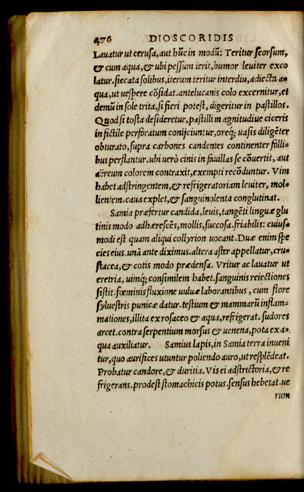 476 DIOSCORIDIS
Lauatur ut cerusa, aut hũc in modũ: Teritur seorsum,
& cum aqua, & ubi pessum ierit, humor leuiter exco
latur. siccata solibus, iterum teritur interdiu, adiecta a-
qua, ut uespere cõsidat. antelucanis colo excernitur, et
demũ in sole trita, si fieri potest, digeritur in pastillos.
Quod si tosta desideretur, pastilli magnitudiue ciceris
in fictile perforatum conijciuntur, oreq; uasis diligẽter
obturato, supra carbones candentes continenter folli-
bus perflantur. ubi uerò cinis in fauillas se cõuertit, aut
aëreum colorem contraxit, exempti recõduntur. Vim
habet adstringentem, & refrigeratoriam leuiter, mol-
lientem. caua explet, & sanguinolenta conglutinat.
Samia præfertur candida, leuis, tangẽti linguæ glu
tinis modo adhærescẽs, mollis, succosa. friabilis: cuius-
modi est quam aliqui collyrion uocant. Duæ enim spe
cies eius. unã ante diximus. altera aster appellatur, cru-
stacea, & cotis modo prædensa. Vritur ac lauatur ut
eretria, uimq; consimilem habet. sanguinis reiectiones
sistit. fœminis fluxione uuluæ laborantibus, cum flore
syluestris punicæ datur. testium & mammarũ inflam-
mationes, illita ex rosaceo & aqua, refrigerat. sudores
arcet. contra serpentium morsus & uenena, pota ex a-
qua auxiliatur. Samius lapis, in Samia terra inueni
tur, quo aurifices utuntur poliendo auro, ut resplẽdeat.
Probatur candore, & duritia. Vis ei adstrictoria, & re
frigerans. prodest stomachicis potus. sensus hebetat. ue
rum